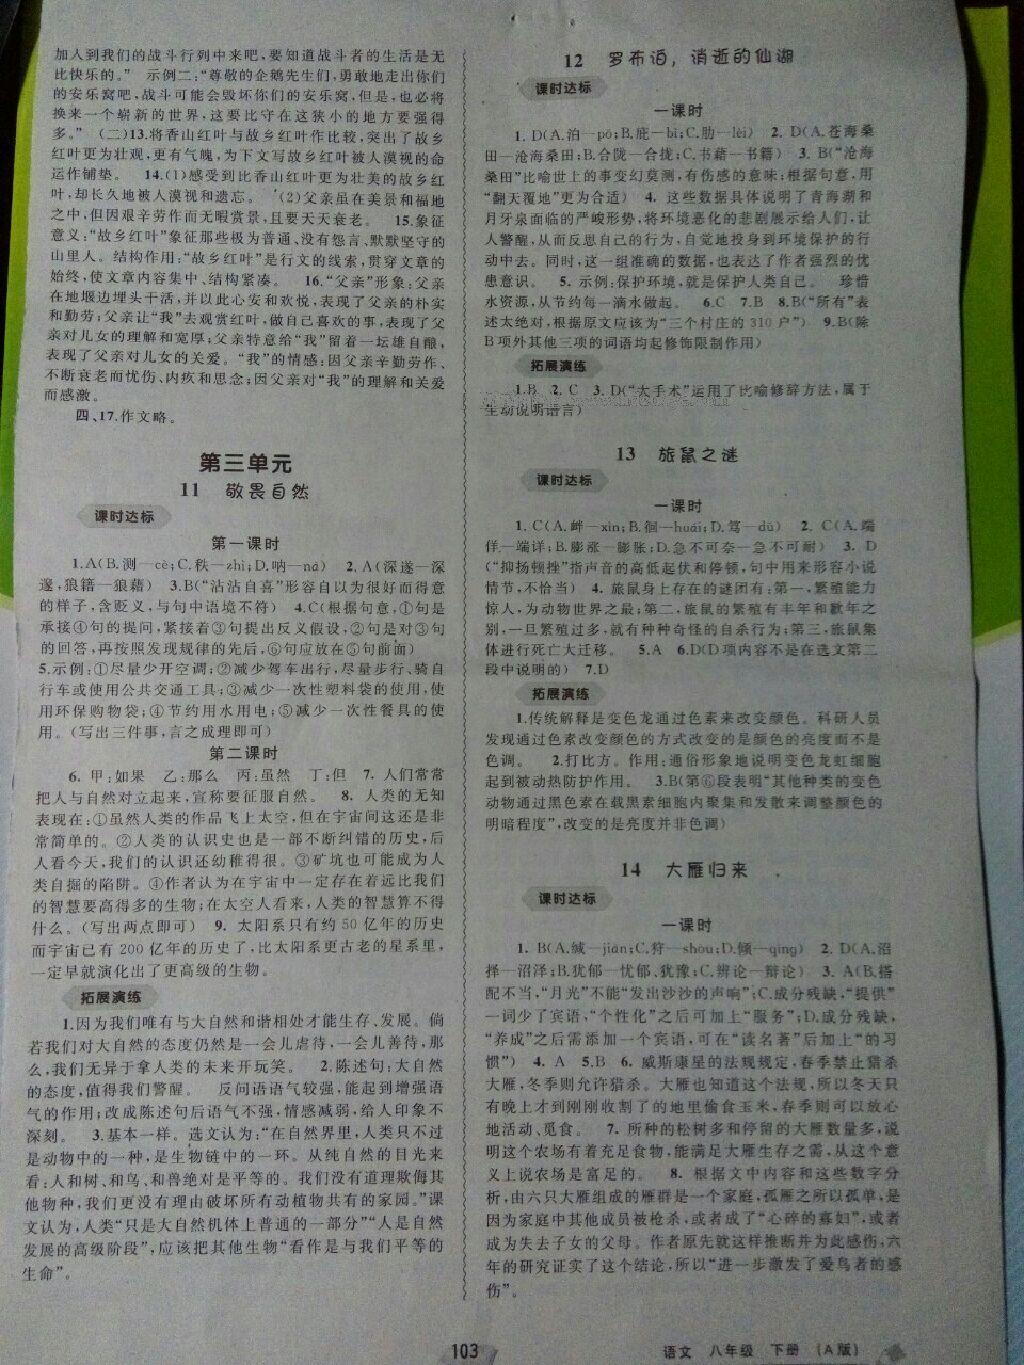 加入到我们的战斗行列中来吧，要知道战斗者的生活是无
比快乐的。”　示例二：“尊敬的企鹅先生们，勇敢地走出你们
的安乐窝吧，战斗可能会毁坏你们的安乐窝，但是，也必将
换来一个崭新的世界，这要比守在这狭小的地方要强得
多。”　(二)13.将香山红叶与故乡红叶作比较，突出了故乡
红叶更为壮观，更有气魄，为下文写故乡红叶被人漠视的命
运作铺垫。　14.(1)感受到比香山红叶更为壮美的故乡红
叶，却长久地被人漠视和遗忘。　(2)父亲虽在美景和福地
之中，但因艰辛劳作而无暇赏景，且要天天衰老。　15.象征
意义：“故乡红叶”象征那些极为普通、没有怨言、默默坚守的
山里人。结构作用：“故乡红叶”是行文的线索，贯穿文章的
始终，使文章内容集中、结构紧凑。　16.“父亲”形象：父亲
在地堰边埋头干活，并以此心安和欢悦，表现了父亲的朴实
和勤劳；父亲让“我”去观赏红叶，做自己喜欢的事，表现了父
亲对儿女的理解和宽厚；父亲特意给“我”留着一坛雄自酿，
表现了父亲对儿女的关爱。“我”的情感：因父亲辛勤劳作、
不断衰老而忧伤、内疚和思念；因父亲对“我”的理解和关爱
而感激。
四、17.作文略。
第三单元
11　敬畏自然
课时达标
第一课时
1.A(B.测—cè；C.秩—zhì；D.呐—nà)　2.A(深遂—深
邃，狼籍—狼藉)　3.B(“沾沾自喜”形容自以为很好而得意
的样子，含贬义，与句中语境不符)　4.C(根据句意，①句是
承接④句的提问，紧接着③句提出反义假设，②句是对③句
的回答，再按照发现规律的先后，⑥句应放在⑤句前面)
5.示例：①尽量少开空调；②减少驾车出行，尽量步行、骑自
行车或使用公共交通工具；③减少一次性塑料袋的使用，使
用环保购物袋；④节约用水用电；⑤减少一次性餐具的使
用。(写出三件事，言之成理即可)
第二课时
6.甲：如果　乙：那么　丙：虽然　丁：但　7.人们常常
把人与自然对立起来，宣称要征服自然。　8.人类的无知
表现在：①虽然人类的作品飞上太空，但在宇宙间这还是非
常简单的。②人类的认识史也是一部不断纠错的历史，后
人看今天，我们的认识还幼稚得很。③矿坑也可能成为人
类自掘的陷阱。④作者认为在宇宙中一定存在着远比我们
的智慧要高得多的生物；在太空人看来，人类的智慧算不得
什么。(写出两点即可)　9.太阳系只有约50亿年的历史
而宇宙已有200亿年的历史了，比太阳系更古老的星系里，
一定早就演化出了更高级的生物。
拓展演练
1.因为我们唯有与大自然和谐相处才能生存、发展。倘
若我们对大自然的态度仍然是一会儿虐待，一会儿善待，那
么，我们无异于拿人类的未来开玩笑。　2.陈述句：大自然
的态度，值得我们警醒。　反问语语气较强，能起到增强语
气的作用；改成陈述句后语气不强，情感减弱，给人印象不
深刻。　3.基本一样。选文认为：“在自然界里，人类只不过
是动物中的一种，是生物链中的一环。从纯自然的目光来
看：人和树、和鸟、和兽绝对是平等的。我们没有道理欺侮其
他物种，我们更没有理由破坏所有动植物共有的家园。”课
文认为，人类“只是大自然机体上普通的一部分”“人是自然
发展的高级阶段”，应该把其他生物“看作是与我们平等的
生命”。
12　罗布泊，消逝的仙湖
课时达标
一课时
1.D(A.泊—pō；B.庇—bì；C.肋—lèi)　2.D(A.苍海桑
田—沧海桑田；B.合陇—合拢；C.书藉—书籍)　3.B(“沧海
桑田”比喻世上的事变幻莫测，有伤感的意味；根据句意，用
“翻天覆地”更为合适)　4.这些数据具体说明了青海湖和
月牙泉面临的严峻形势，将环境恶化的悲剧展示给人们，让
人警醒，从而反思自己的行为，自觉地投身到环境保护的行
动中去。同时，这一组准确的数据，也表达了作者强烈的忧
患意识。　5.示例：保护环境，就是保护人类自己。　珍惜
水资源，从节约每一滴水做起。　6.C　7.B　8.B(“所有”表
述太绝对，根据原文应该为“三个村庄的310户”)　9.B(除
B项外其他三项的词语均起修饰限制作用)
拓展演练
1.B　2.C　3.D(“大手术”运用了比喻修辞方法，属于
生动说明语言)
13　旅鼠之谜
课时达标
一课时
1.C(A.衅—xìn；B.徊—huái；D.笃—dǔ)　2.C(A.端
佯—端详；B.膨涨—膨胀；D.急不可奈—急不可耐)　3.D
(“抑扬顿挫”指声音的高低起伏和停顿，句中用来形容小说
情节，不恰当)　4.旅鼠身上存在的谜团有：第一，繁殖能力
惊人，为动物世界之最；第二，旅鼠的繁殖有丰年和歉年之
别，一旦繁殖过多，就有种种奇怪的自杀行为；第三，旅鼠集
体进行死亡大迁移。　5.A　6.D(D项内容不是在选文第二
段中说明的)　7.D
拓展演练
1.传统解释是变色龙通过色素来改变颜色。科研人员
发现通过色素改变颜色的方式改变的是颜色的亮度而不是
色调。　2.打比方。作用：通俗形象地说明变色龙虹细胞
起到被动热防护作用。　3.B(第⑥段表明“其他种类的变色
动物通过黑色素在载黑素细胞内聚集和发散来调整颜色的
明暗程度”，改变的是亮度并非色调)
14　大雁归来
课时达标
一课时
1.B(A.缄—jiān；C.狩—shòu；D.倾—qīng)　2.D(A.沼
择—沼泽；B.犹郁—忧郁、犹豫；C.辨论—辩论)　3.A(B.搭
配不当，“月光”不能“发出沙沙的声响”；C.成分残缺，“提供”
一词少了宾语，“个性化”之后可加上“服务”；D.成分残缺，
“养成”之后需添加一个宾语，可在“读名著”后加上“的习
惯”)　4.A　5.B　6.威斯康星的法规规定，春季禁止猎杀
大雁，冬季则允许猎杀。大雁也知道这个法规，所以冬天只
有晚上才到刚刚收割了的地里偷食玉米，春季则可以放心
地活动、觅食。　7.所种的松树多和停留的大雁数量多，说
明这个农场有着充足食物，能满足大雁生存之需，从这个意
义上说农场是富足的。　8.根据文中内容和这些数字分
析，由六只大雁组成的雁群是一个家庭，孤雁之所以孤单，是
因为家庭中其他成员被枪杀，或者成了“心碎的寡妇”，或者
成为失去子女的父母。作者原先就这样推断并为此感伤；六
年的研究证实了这个结论，所以“进一步激发了爱鸟者的感
伤”。
103
语文　八年级　下册　(A版)